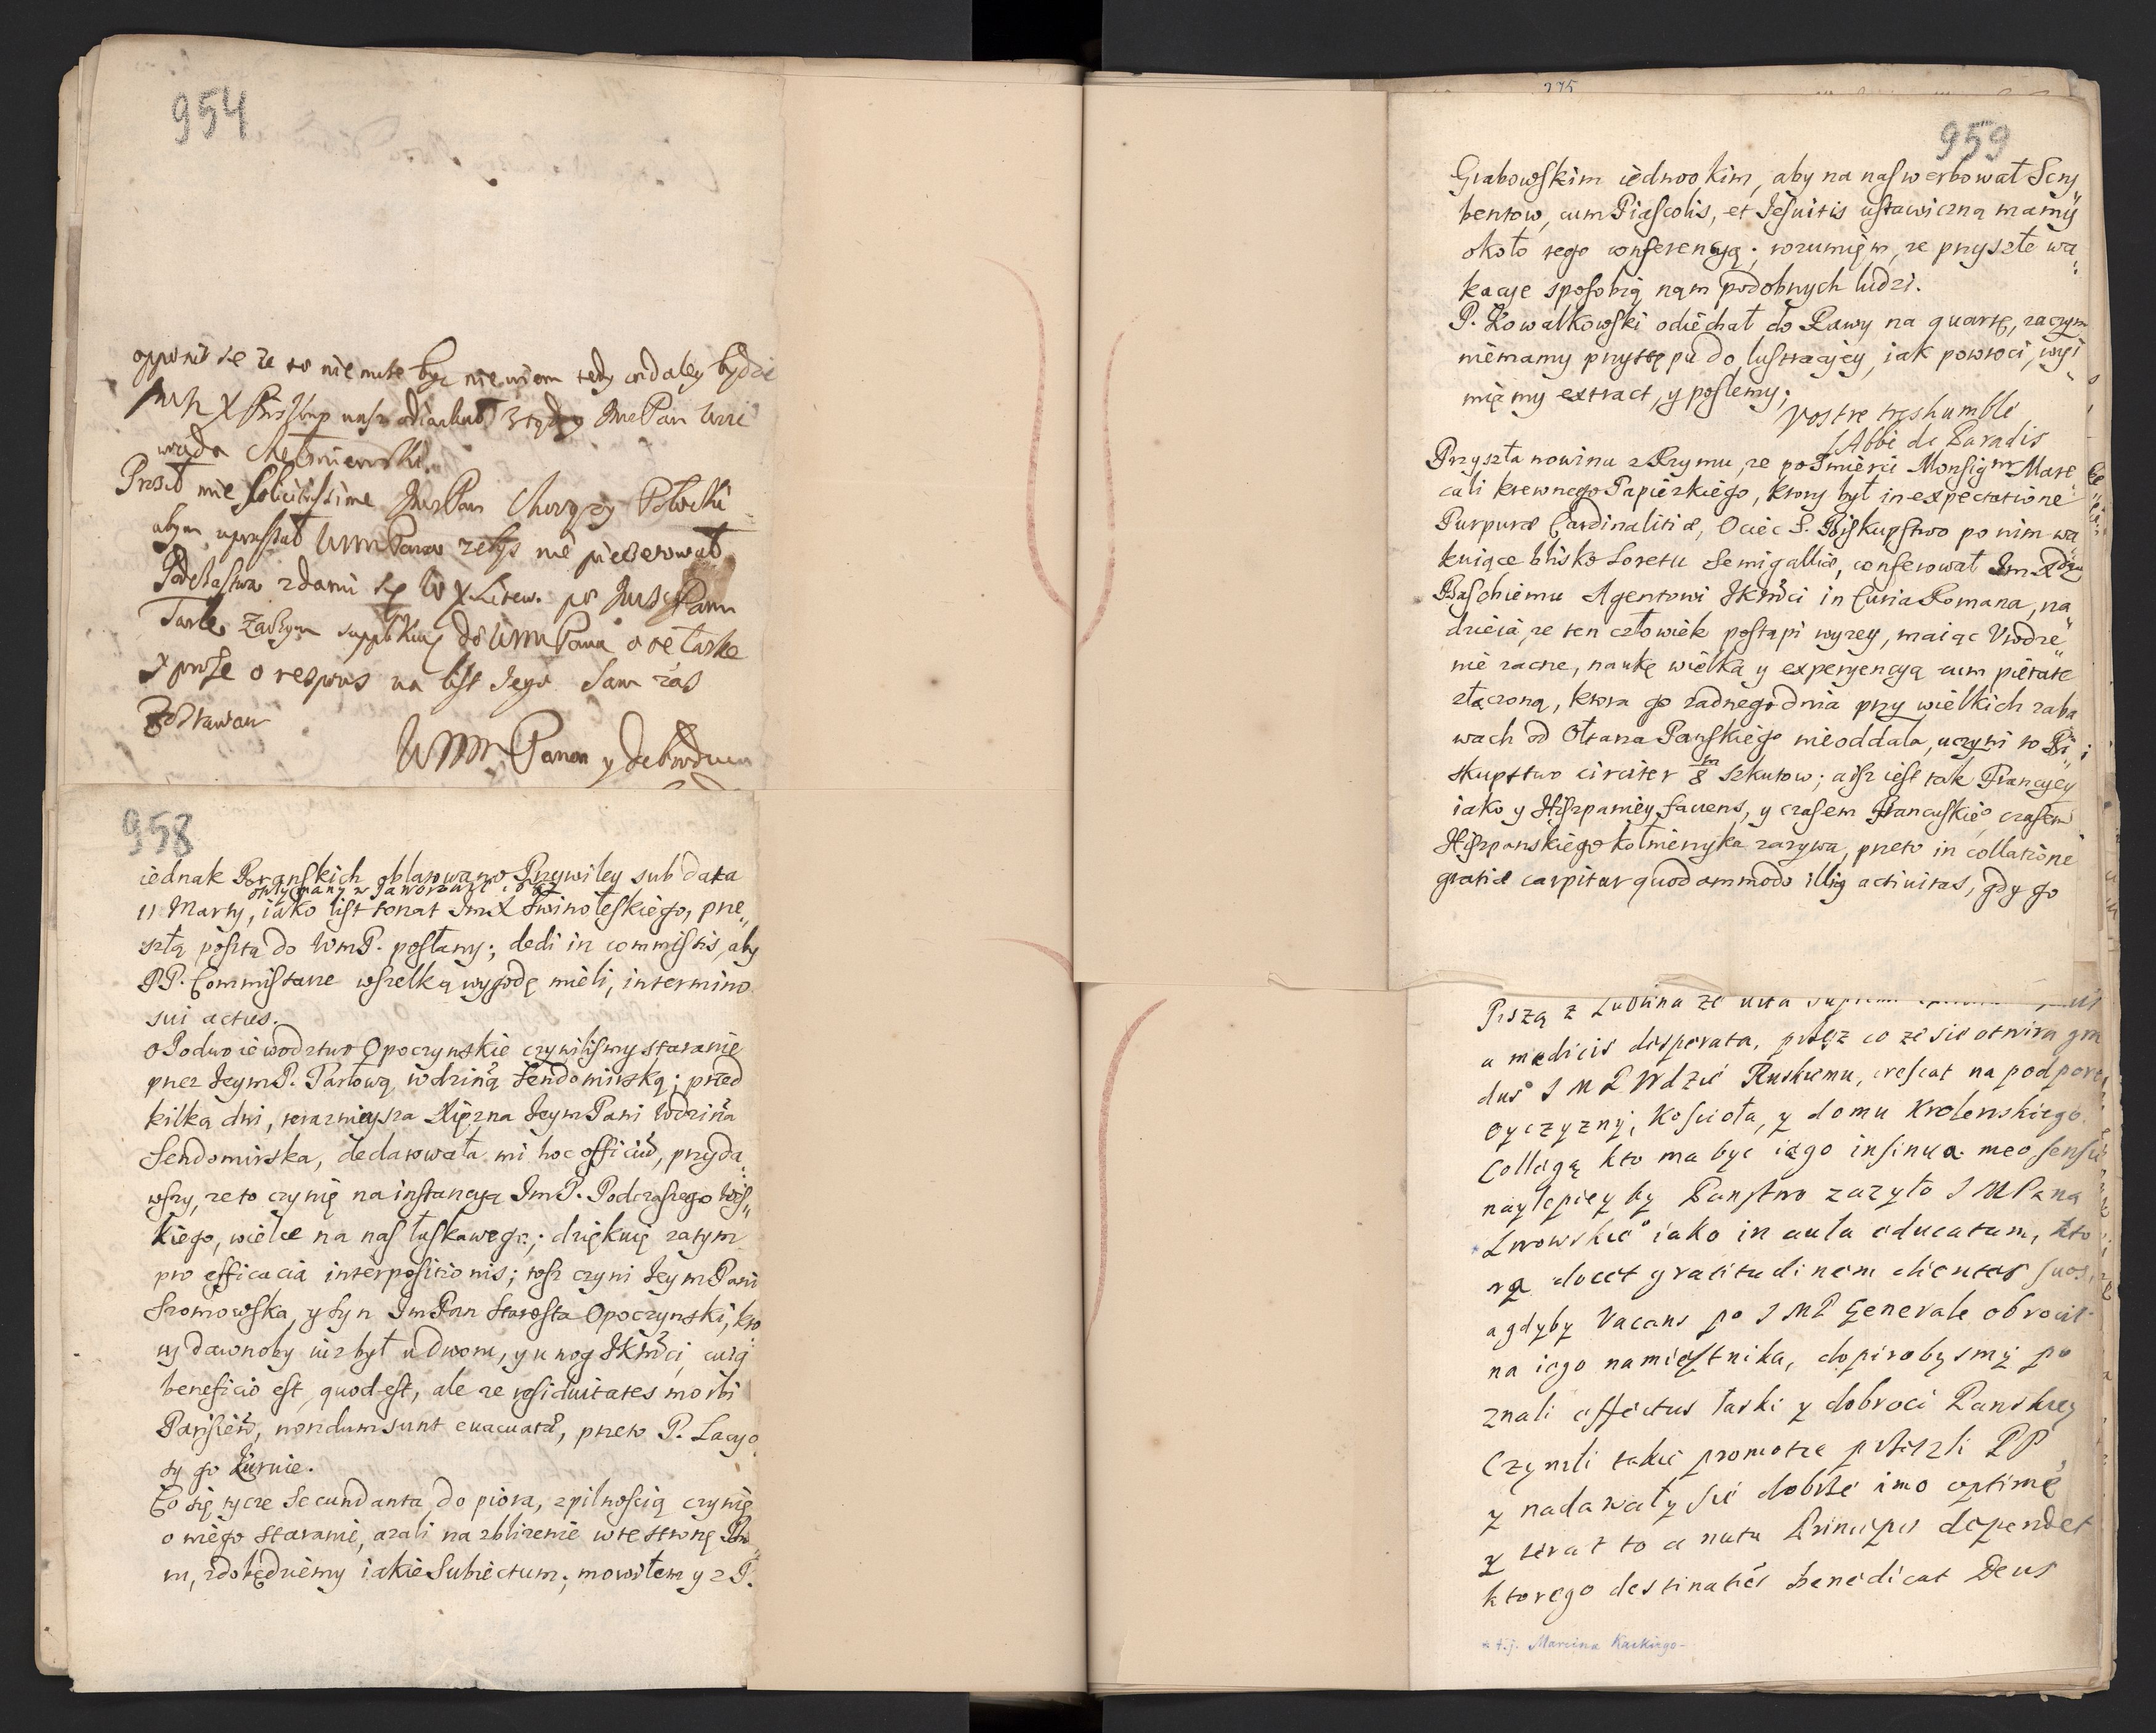 954
opponit se ze to nie może być nie wiem tedy co daley będzie
X Biskup nasz odiachał Jmć Pan
woyda Chełminski.
Prosił mie solicitissime Jmść Pan Chorąży
abym uprasał WMM Pana zebyś nie
zdami się W X Litew. po Jmści Panu
Tarle Zaczym supplikuię do WMM Pana o tę łaske
y prosze o respons na list Jego Sam zaś
Zostawam
WMM Pana y Dobrodzieia
958
iednak Boranskich oblatowano Przywiley sub data
otrzymany w Jaworowie
11 Marty, iako list sonat ImX Swinoleskiego, prze„
szłą posztą do WmP. posłany; dedi in commissis, aby
PP. Commissarze wszelką wygodę mieli, in termino
sui actus.
O Podwoiewodztwo Opoczynskie czynilismy staranie
przez JeymP. Tarłową, wdziną Sendomirską; przed
kilką dni, teraznieysza Xiężna JeymPani Wdzina
Sendomirska, declarowała mi hoc officiu, przyda„
wszy, ze to czynię na instancyą ImP. Podczaszego
kiego, wielce na nas łaskawego; dziękuię zatym
pro efficacia interpositionis; tosz czyni JeymPani
Szomowska, y Syn ImPan Starosta Opoczynski, kto
ry dawnoby iuz był u Dworu, y u nog JKMci, cuig
beneficio est, quod est, ale ze residuitates morbi
Parisien, nondum sunt evacuatæ, przeto P. Lacyo
ty go kuruie.
Co się tycze Secundanta do piora, z pilnoscią czynię
o niego staranie, azali na zblizenie w te stronę
m, zdobędziemy iakie Subiectum; mowiłem y z P.
275
959
Grabowskim iednookim, aby na nas werbował Scry„
bentow, cum Piascolis, et Jesuitis ustawiczną mamy
około tego conferencyą; rozumięm, ze przyszłe wa„
kacye sposobią nąm podobnych ludzi.
P. Kowalkowski odiechał do Rawy na quartę, zaczym
niemamy przystępu do lustracyey, iak powroci, wyi„
mięmy extract, y poslemy.
Vostre treshumble
l'Abbe de Paradis
Przyszła nowina z Rzymu, ze po Smierci Monsigr Mare„
cali krewnego Papiezkiego, ktory był in expectatione
Purpuræ Cardinalitiæ, Ociec S. Biskupstwo po nim wa„
kuiące blisko Loretu Semigalliæ, conferował ImX
Baschiemu Agentowi JKMci in Curia Romana, na
dzieia, ze ten człowiek postąpi wyzey, maiąc Vrodze„
nie zacne, naukę wielką y experyencyą cum pietate
złączoną, ktora go zadnego dnia przy wielkich zaba
wach od Ołtarza Panskiego nieoddala, uczyni to Bi„
skupstwo circiter 8 m szkutow; aisz iest tak Francyey
iako y Hiszpaniey favens, y czasem francuskie, czasem
Hiszpanskiego kołnierzyka zazywa, przeto in collatione
gratiæ carpitur quodammodo illig activitas, gdy go
Piszą z Lublina ze vita
a medicis desperata, przez co ze sie otwira gra
dus J M P Wdzie Ruskiemu, crescat na podporę
oyczyzny, Koscioła, y domu Krolewskiego.
Collegą kto ma byc iego insinua meo sensu
naylepiey by Panstwo zazyło J M Pana
* Lwowskie iako in aula educatum, kto
rą docet gratitudinem clientes suos,
a gdyby Vacans po J M P Generale obrocił
na iego namiestnika, dopirobysmy po
znali effectus łaski y dobroci Panskiey
Czynili takie promotie przeszli PP.
y nadawały sie dobrze imo optime
y teraz to a nutu Principis dependet
ktorego destinaties benedicat Deus
* t.j. Marcina Kackiego-